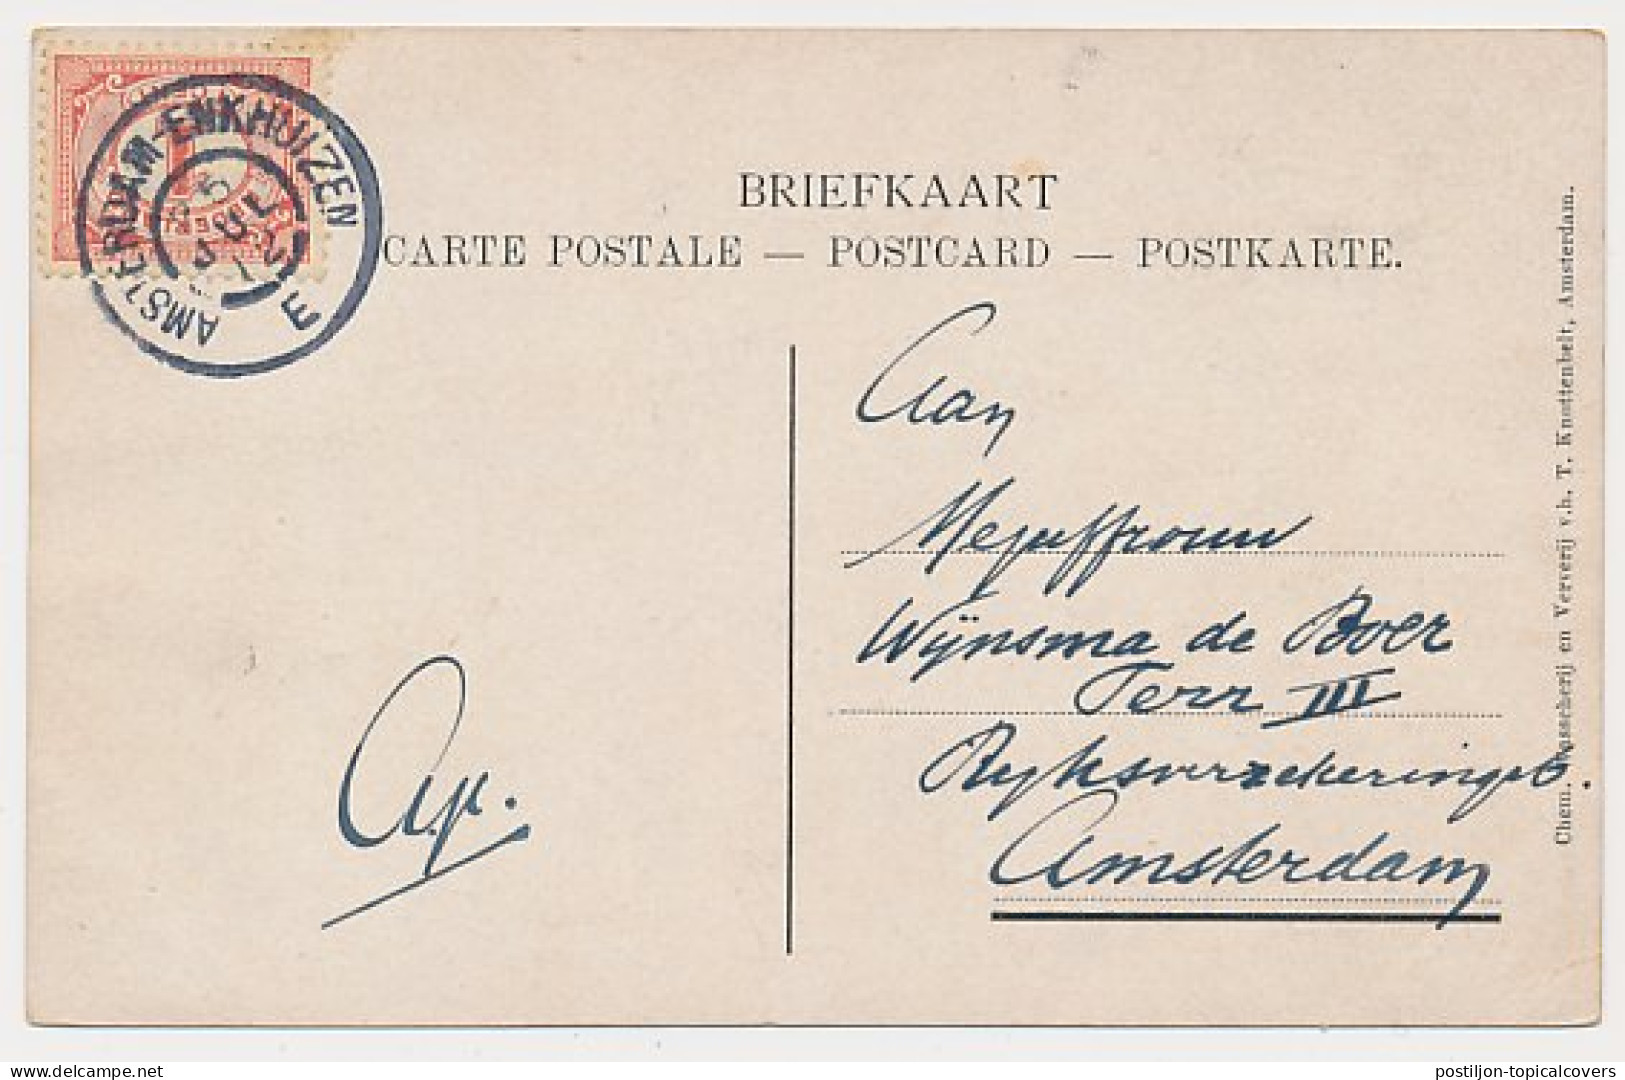 AMSTERDAM-ENKHUIZEN
5 JUL 12
E
BRIEFKAART
CARTE POSTALE — POSTCARD — POSTKARTE.
Aan
Mejuffrouw
Wijnsma de Boer
Terr III
Ryksverzekeringsb.
Amsterdam
Chem. Wasscherij en Ververij v.h. T. Knottenbelt, Amsterdam.
postiljon-topicalcovers